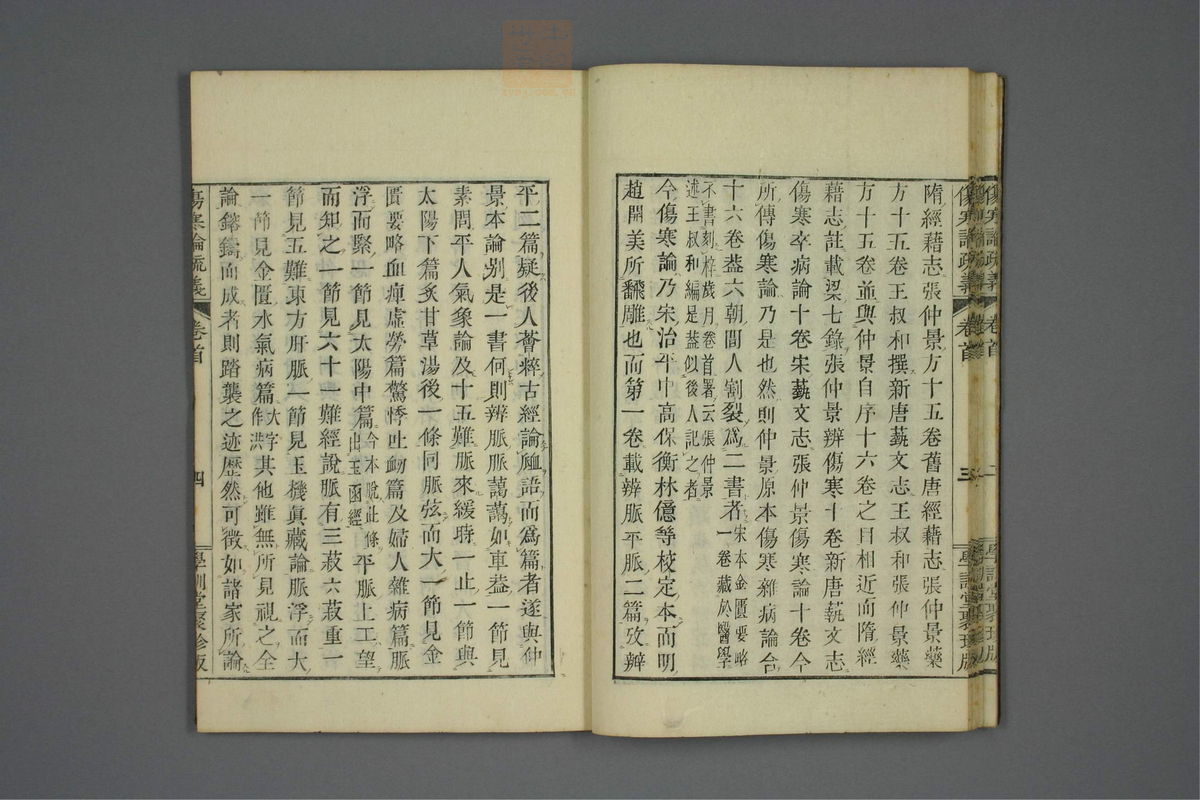 隋經藉志張仲景方十五卷舊唐經藉志張仲景藥
方十五卷王叔和撰新唐藝文志王叔和張仲景藥
方十五卷並與仲景自序十六卷之目相近而隋經
藉志註載梁七錄張仲景辨傷寒十卷新唐藝文志
傷寒卒病論十卷宋藝文志張仲景傷寒論十卷今
所傳傷寒論乃是也然則仲景原本傷寒雜病論合
十六卷葢六朝間人割裂爲二書者宋本金匱要略一卷藏於醫學
不書刻梓歲月卷首署云張仲景述王叔和編是葢似後人記之者
今傷寒論乃宋治平中高保衡林億等校定本而明
趙開美所飜雕也而第一卷載辨脈平脈二篇攷辨
平二篇疑後人薈粹古經論𧗱語而爲篇者遂與仲
景本論別是一書何則辨脈脈藹藹如車葢一節見
素問平人氣象論及十五難脈來緩時一止一節與
太陽下篇炙甘草湯後一條同脈弦而大一節見金
匱要略血痺虛勞篇驚悸吐衂篇及婦人雜病篇脈
浮而聚一節見太陽中篇今本脫此條出玉函經平脈上工望
而知之一節見六十一難經說脈有三菽六菽重一
節見五難東方肝脈一節見玉機眞藏論脈浮而大
一節見金匱水氣病篇大字作洪其他雖無所見視之全
論鎔鑄而成者則踏襲之迹歷然可徵如諸家所論
傷寒論疏義 卷首 三
傷寒論疏義 卷首 四 學訓堂聚珍版